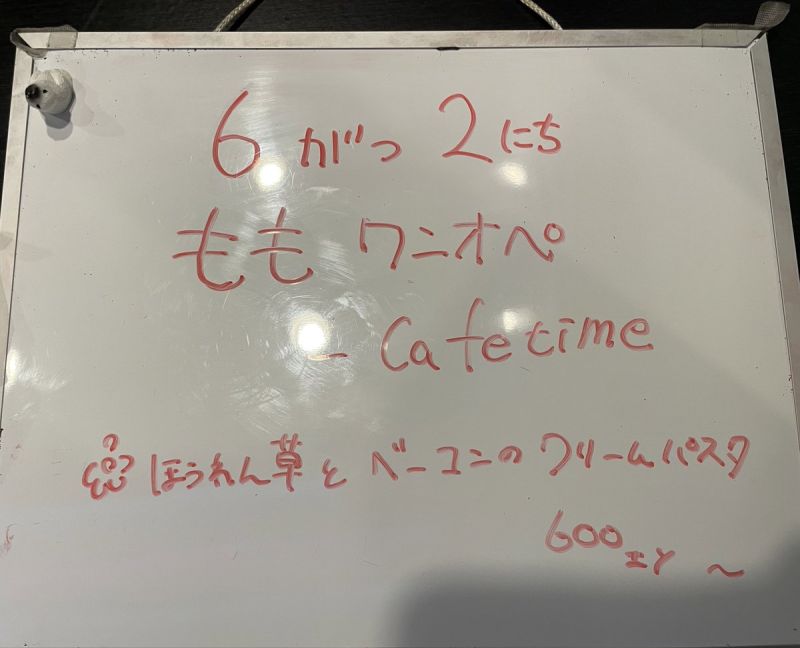 6がつ2にち
もも ワンオペ
- Cafetime
ほうれん草とベーコンのクリームパスタ
600エン 〜